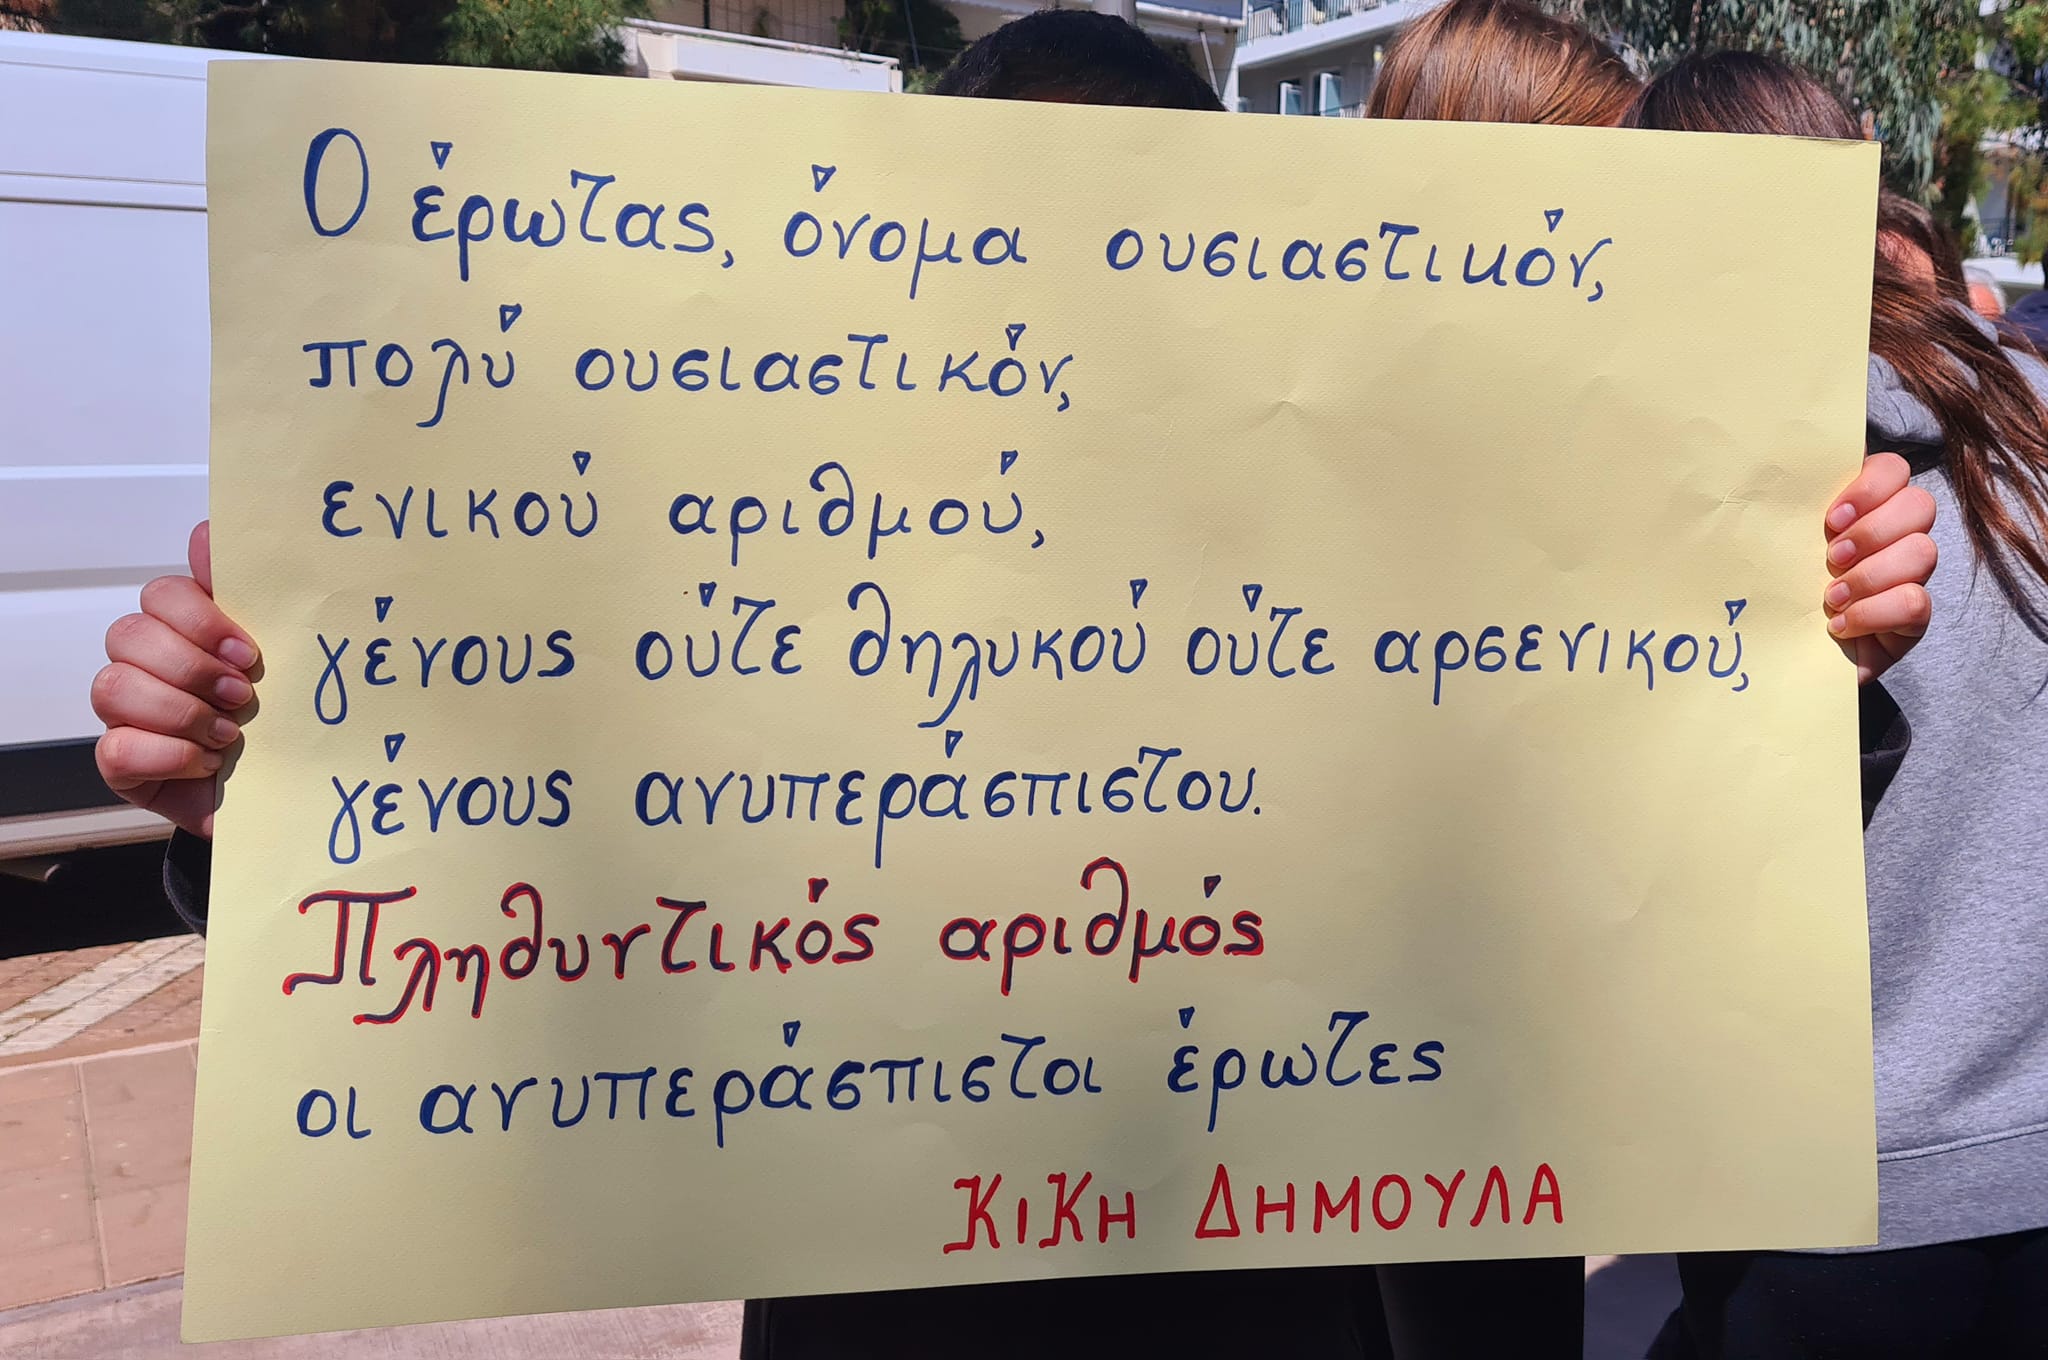 Ο έρωτας, όνομα ουσιαστικόν,
πολύ ουσιαστικόν,
ενικού αριθμού,
γένους ούτε θηλυκού ούτε αρσενικού,
γένους ανυπεράσπιστου.
Πληθυντικός αριθμός
οι ανυπεράσπιστοι έρωτες
ΚΙΚΗ ΔΗΜΟΥΛΑ